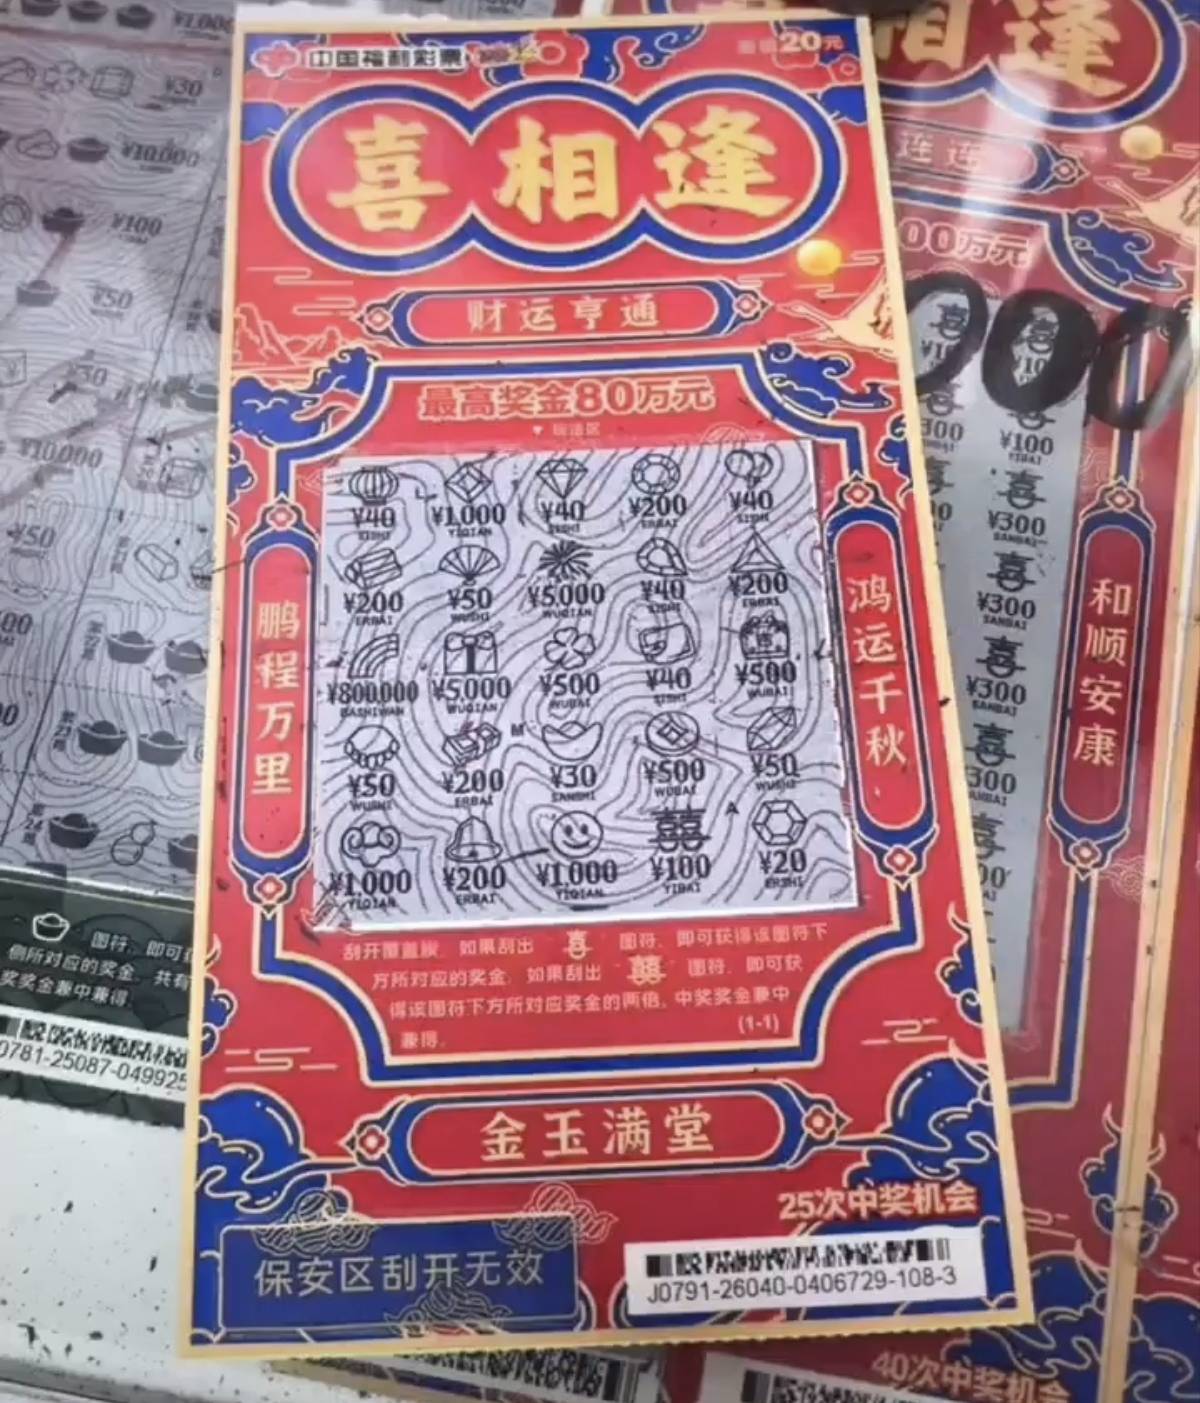 中国福利彩票
面值20元
喜相逢
财运亨通
最高奖金80万元
▼ 玩法区
鹏程万里
鸿运千秋
¥40 ¥1,000 ¥40 ¥200 ¥40
SISHI YIQIAN SISHI ERBAI SISHI
¥200 ¥50 ¥5,000 ¥40 ¥200
ERBAI WUSHI WUQIAN SISHI ERBAI
¥800,000 ¥5,000 ¥500 ¥40 ¥500
BASHIWAN WUQIAN WUBAI SISHI WUBAI
¥50 ¥200 ¥30 ¥500 ¥50
WUSHI ERBAI SANSHI WUBAI WUSHI
囍
¥1,000 ¥200 ¥1,000 ¥100 ¥20
YIQIAN ERBAI YIQIAN YIBAI ERSHI
刮开覆盖膜，如果刮出 喜 图符，即可获得该图符下
方所对应的奖金，如果刮出 囍 图符，即可获
得该图符下方所对应奖金的两倍。中奖奖金兼中
兼得。
(1-1)
金玉满堂
25次中奖机会
保安区刮开无效
J0791-26040-0406729-108-3
¥30
¥10,000
¥100
¥50
¥10,000
¥50
图符，即可获
所对应的奖金，共有
奖奖金兼中兼得。
0781-25087-049925
相逢
00万元
000
喜
喜
¥100
YIBAI
喜
¥300
SANBAI
喜
¥300
SANBAI
喜
¥300
SANBAI
喜
和顺安康
40次中奖机会